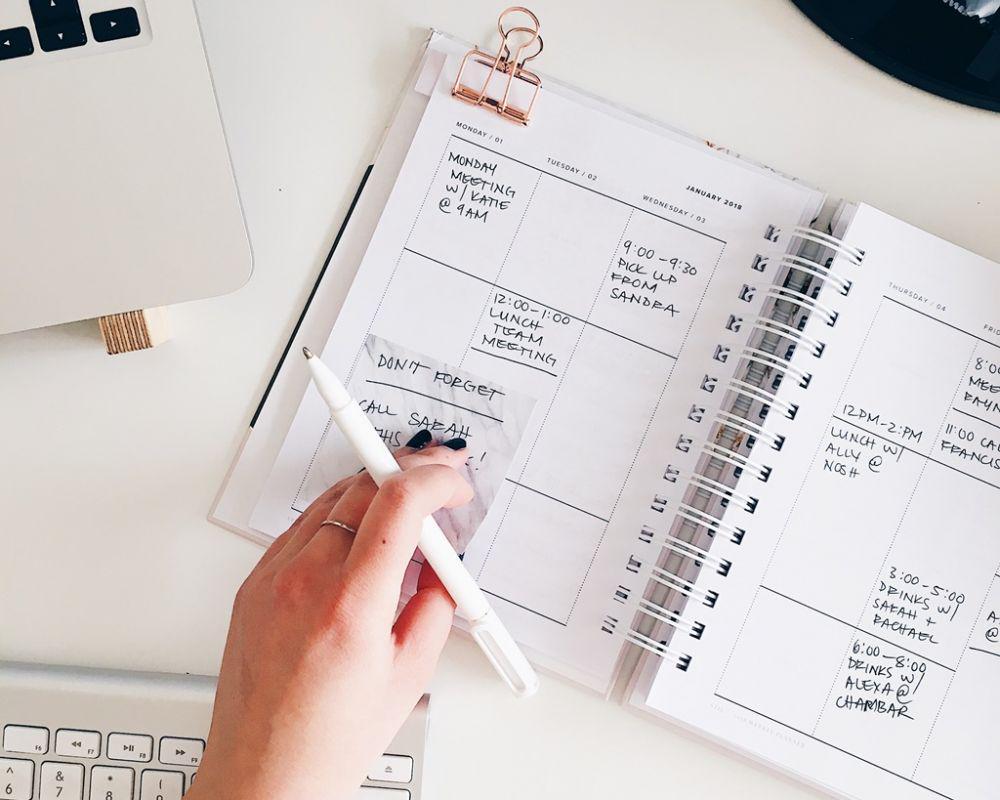 JANUARY 2018
MONDAY / 01
MONDAY
MEETING
W/ KATIE
@ 9AM
DON'T FORGET
CALL SARAH
THIS
!
TUESDAY / 02
12:00-1:00
LUNCH
TEAM
MEETING
WEDNESDAY / 03
9:00-9:30
PICK UP
FROM
SANDRA
THURSDAY / 04
12PM-2:PM
LUNCH W/
ALLY @
NOSH
FRID
8:00
MEE
11:00 CA
FRANCIS
3:00-5:00
DRINKS W/
SARAH +
RACHAEL
6:00-8:00
DRINKS W/
ALEXA @
CHAMBAR
A
@
F6
F7
F8
F9
^
6
&
7
*
8
(
9